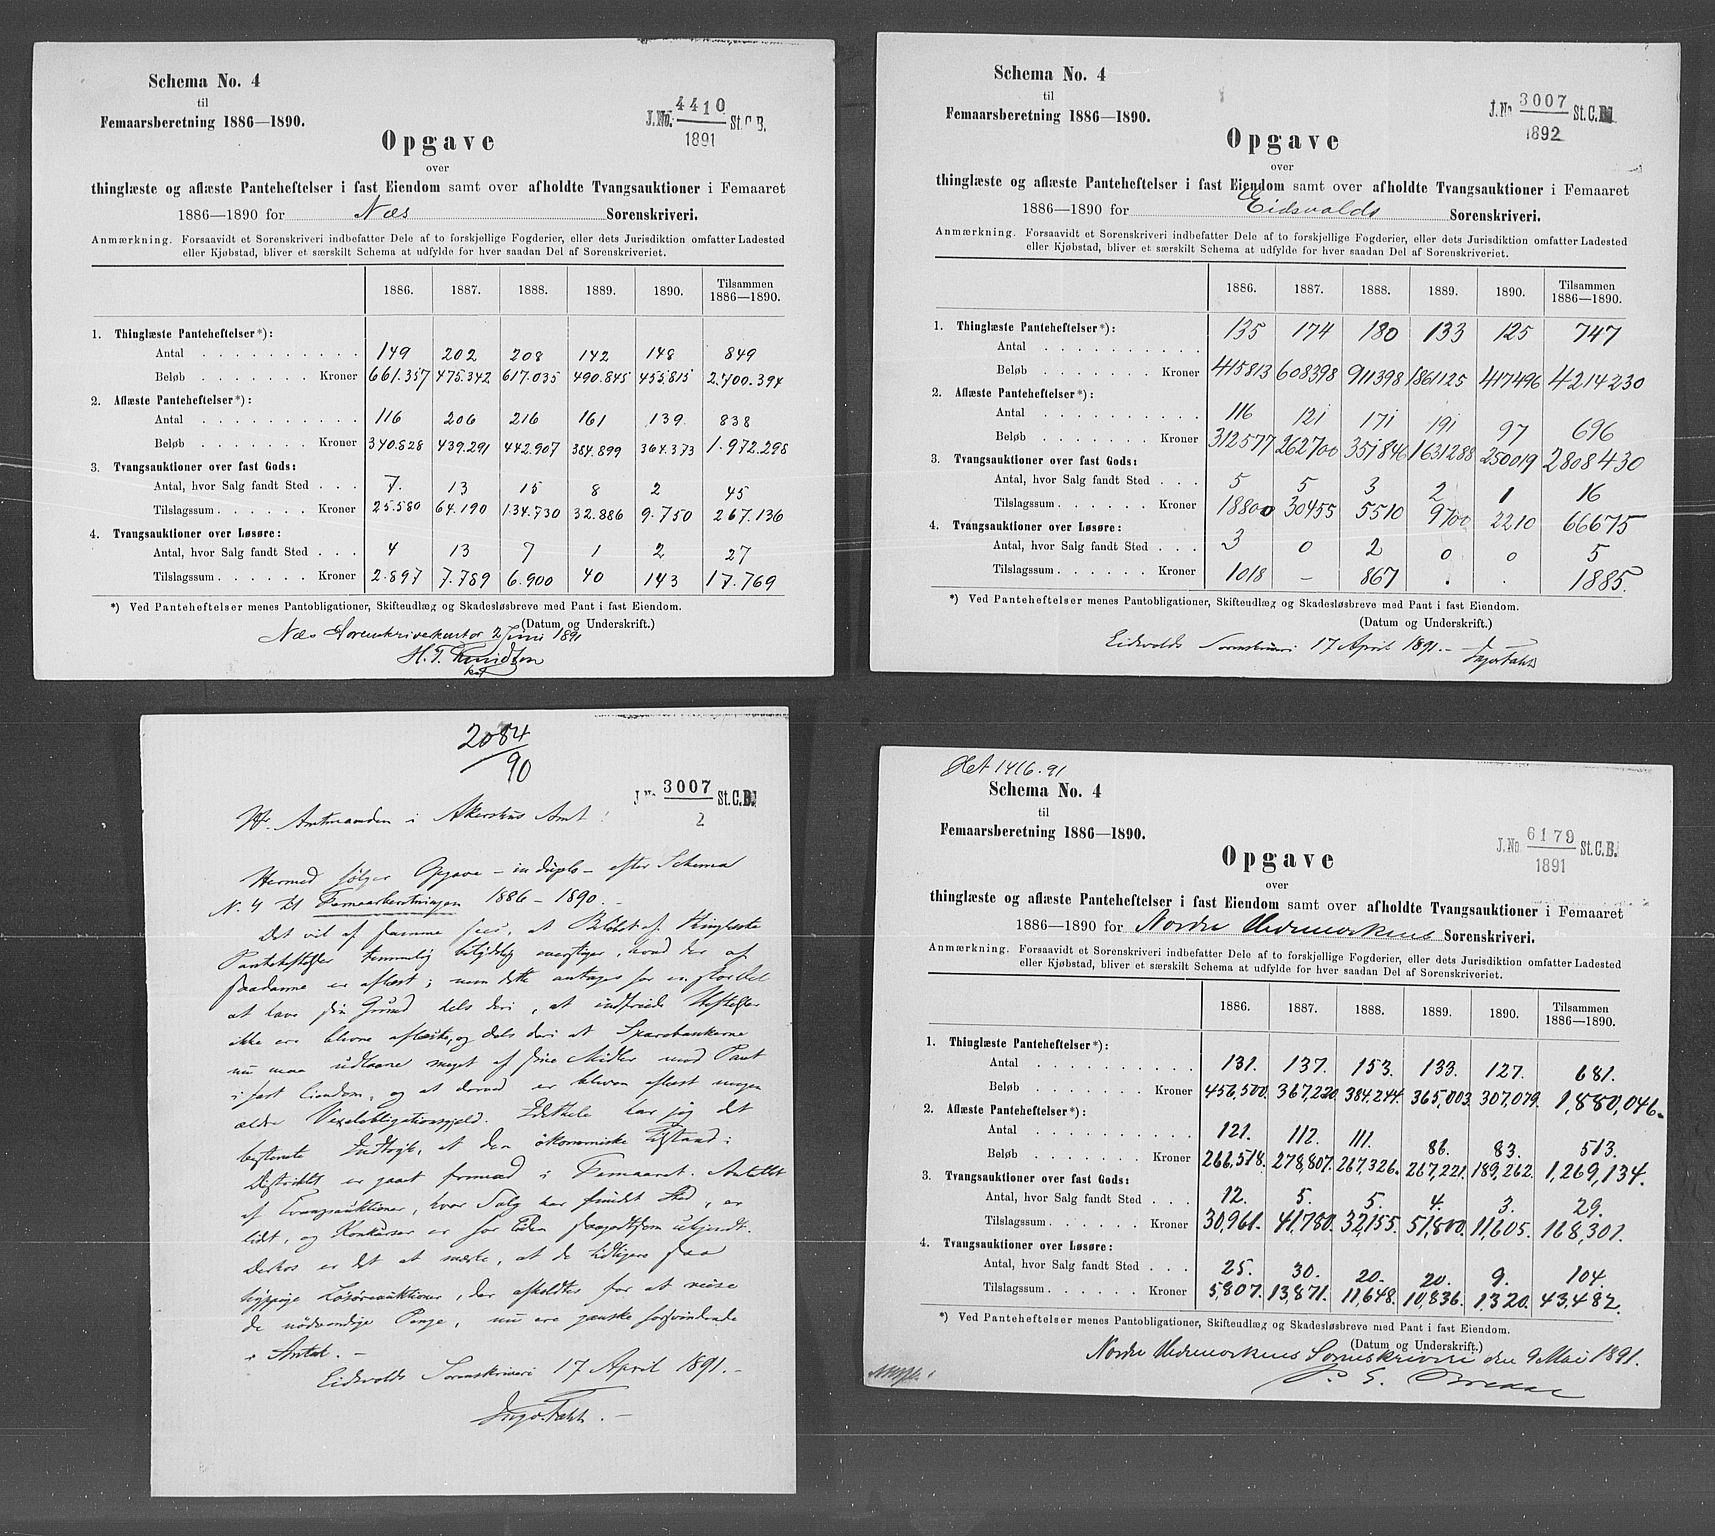 Schema No. 4
til
Femaarsberetning 1886—1890.
J.No. 4410 St.C.B.
1891
Opgave
over
thinglæste og aflæste Panteheftelser i fast Eiendom samt over afholdte Tvangsauktioner i Femaaret
1886—1890 for Næs Sorenskriveri.
Anmærkning. Forsaavidt et Sorenskriveri indbefatter Dele af to forskjellige Fogderier, eller dets Jurisdiktion omfatter Ladested
eller Kjøbstad, bliver et særskilt Schema at udfylde for hver saadan Del af Sorenskriveriet.
1886. 1887. 1888. 1889. 1890. Tilsammen 1886—1890.
1. Thinglæste Panteheftelser*):
Antal 149 202 208 142 148 849
Beløb Kroner 661.357 475.342 617.035 490.845 455.815 2.700.394
2. Aflæste Panteheftelser*):
Antal 116 206 216 161 139 838
Beløb Kroner 340.828 439.291 442.907 384.899 364.373 1.972.298
3. Tvangsauktioner over fast Gods:
Antal, hvor Salg fandt Sted 7. 13 15 8 2 45
Tilslagssum Kroner 25.580 64.190 134.730 32.886 9.750 267.136
4. Tvangsauktioner over Løsøre:
Antal, hvor Salg fandt Sted 4 13 7 1 2 27
Tilslagssum Kroner 2.897 7.789 6.900 40 143 17.769
*) Ved Panteheftelser menes Pantobligationer, Skifteudlæg og Skadesløsbreve med Pant i fast Eiendom.
(Datum og Underskrift.)
Næs Sorenskriverkontor 2 Juni 1891
H. T. Knudtzon
kst
Schema No. 4
til
Femaarsberetning 1886—1890.
J.No. 3007 St.C.B.
1892
Opgave
over
thinglæste og aflæste Panteheftelser i fast Eiendom samt over afholdte Tvangsauktioner i Femaaret
1886—1890 for Eidsvolds Sorenskriveri.
Anmærkning. Forsaavidt et Sorenskriveri indbefatter Dele af to forskjellige Fogderier, eller dets Jurisdiktion omfatter Ladested
eller Kjøbstad, bliver et særskilt Schema at udfylde for hver saadan Del af Sorenskriveriet.
1886. 1887. 1888. 1889. 1890. Tilsammen 1886—1890.
1. Thinglæste Panteheftelser*):
Antal 135 174 180 133 125 747
Beløb Kroner 415813 608398 911398 1861125 417496 4214230
2. Aflæste Panteheftelser*):
Antal 116 121 171 191 97 696
Beløb Kroner 312577 262700 351846 1631288 250019 2808430
3. Tvangsauktioner over fast Gods:
Antal, hvor Salg fandt Sted 5 5 3 2 1 16
Tilslagssum Kroner 18800 30455 5510 9700 2210 66675
4. Tvangsauktioner over Løsøre:
Antal, hvor Salg fandt Sted 3 0 2 0 0 5
Tilslagssum Kroner 1018 — 867 . . 1885.
*) Ved Panteheftelser menes Pantobligationer, Skifteudlæg og Skadesløsbreve med Pant i fast Eiendom.
(Datum og Underskrift.)
Eidsvolds Sorenskriveri 17 April 1891. —
2084
90
J.No. 3007 St.C.B.
2
Hr. Amtmanden i Akershus Amt!
Hermed følger Opgave – in duplo – efter Schema
N. 4 til Femaarsberetningen 1886 – 1890. –
Det vil af samme sees, at Beløbet af thinglæste
Panteheftelser temmelig betydelig overstiger, hvad der af
saadanne er aflæst; men dette antages for en stor Del
at have sin Grund dels deri, at indfriede Heftelser
ikke ere blevne aflæste, og dels deri at Sparebankerne
nu maa udlaane meget af sine Midler mod Pant
i fast Eiendom, og at derved er bleven aflæst megen
ældre Vexelobligationsgjeld. Idethele har jeg det
bestemte Indtryk, at den økonomiske Tilstand i
Distriktet er gaaet fremad i Femaaret. Antallet
af Tvangsauktioner, hvor Salg har fundet Sted, er
lidet, og Konkurser er for Tiden saagodtsom ukjendt.
Derhos er det at mærke, at de tidligere saa
hyppige Løsøreauktioner, der afholdtes for at reise
de nødvendige Penge, nu ere ganske forsvindende
i Antal. –
Eidsvolds Sorenskriveri 17 April 1891. –
Det 1416.91
Schema No. 4
til
Femaarsberetning 1886—1890.
J.No. 6179 St.C.B.
1891
Opgave
over
thinglæste og aflæste Panteheftelser i fast Eiendom samt over afholdte Tvangsauktioner i Femaaret
1886—1890 for Nordre Hedemarkens Sorenskriveri.
Anmærkning. Forsaavidt et Sorenskriveri indbefatter Dele af to forskjellige Fogderier, eller dets Jurisdiktion omfatter Ladested
eller Kjøbstad, bliver et særskilt Schema at udfylde for hver saadan Del af Sorenskriveriet.
1886. 1887. 1888. 1889. 1890. Tilsammen 1886—1890.
1. Thinglæste Panteheftelser*):
Antal 131. 137. 153. 133. 127. 681.
Beløb Kroner 456,500. 367,220 384,244. 365,003. 307,079. 1,880,046.
2. Aflæste Panteheftelser*):
Antal 121. 112. 111. 86. 83. 513.
Beløb Kroner 266,518. 278,807. 267,326. 267,221. 189,262. 1,269,134.
3. Tvangsauktioner over fast Gods:
Antal, hvor Salg fandt Sted 12. 5. 5. 4. 3. 29.
Tilslagssum Kroner 30,961. 41,780. 32,155. 51,800. 11,605. 168,301.
4. Tvangsauktioner over Løsøre:
Antal, hvor Salg fandt Sted 25. 30. 20. 20. 9. 104.
Tilslagssum Kroner 5,807. 13,871. 11,648. 10,836. 1320. 43,482.
*) Ved Panteheftelser menes Pantobligationer, Skifteudlæg og Skadesløsbreve med Pant i fast Eiendom.
(Datum og Underskrift.)
Nordre Hedemarkens Sorenskriveri den 9 Mai 1891.